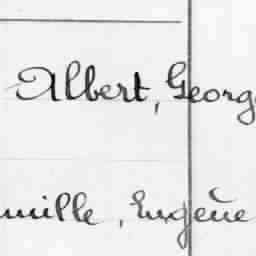 Albert, Georg
mille, Eugène